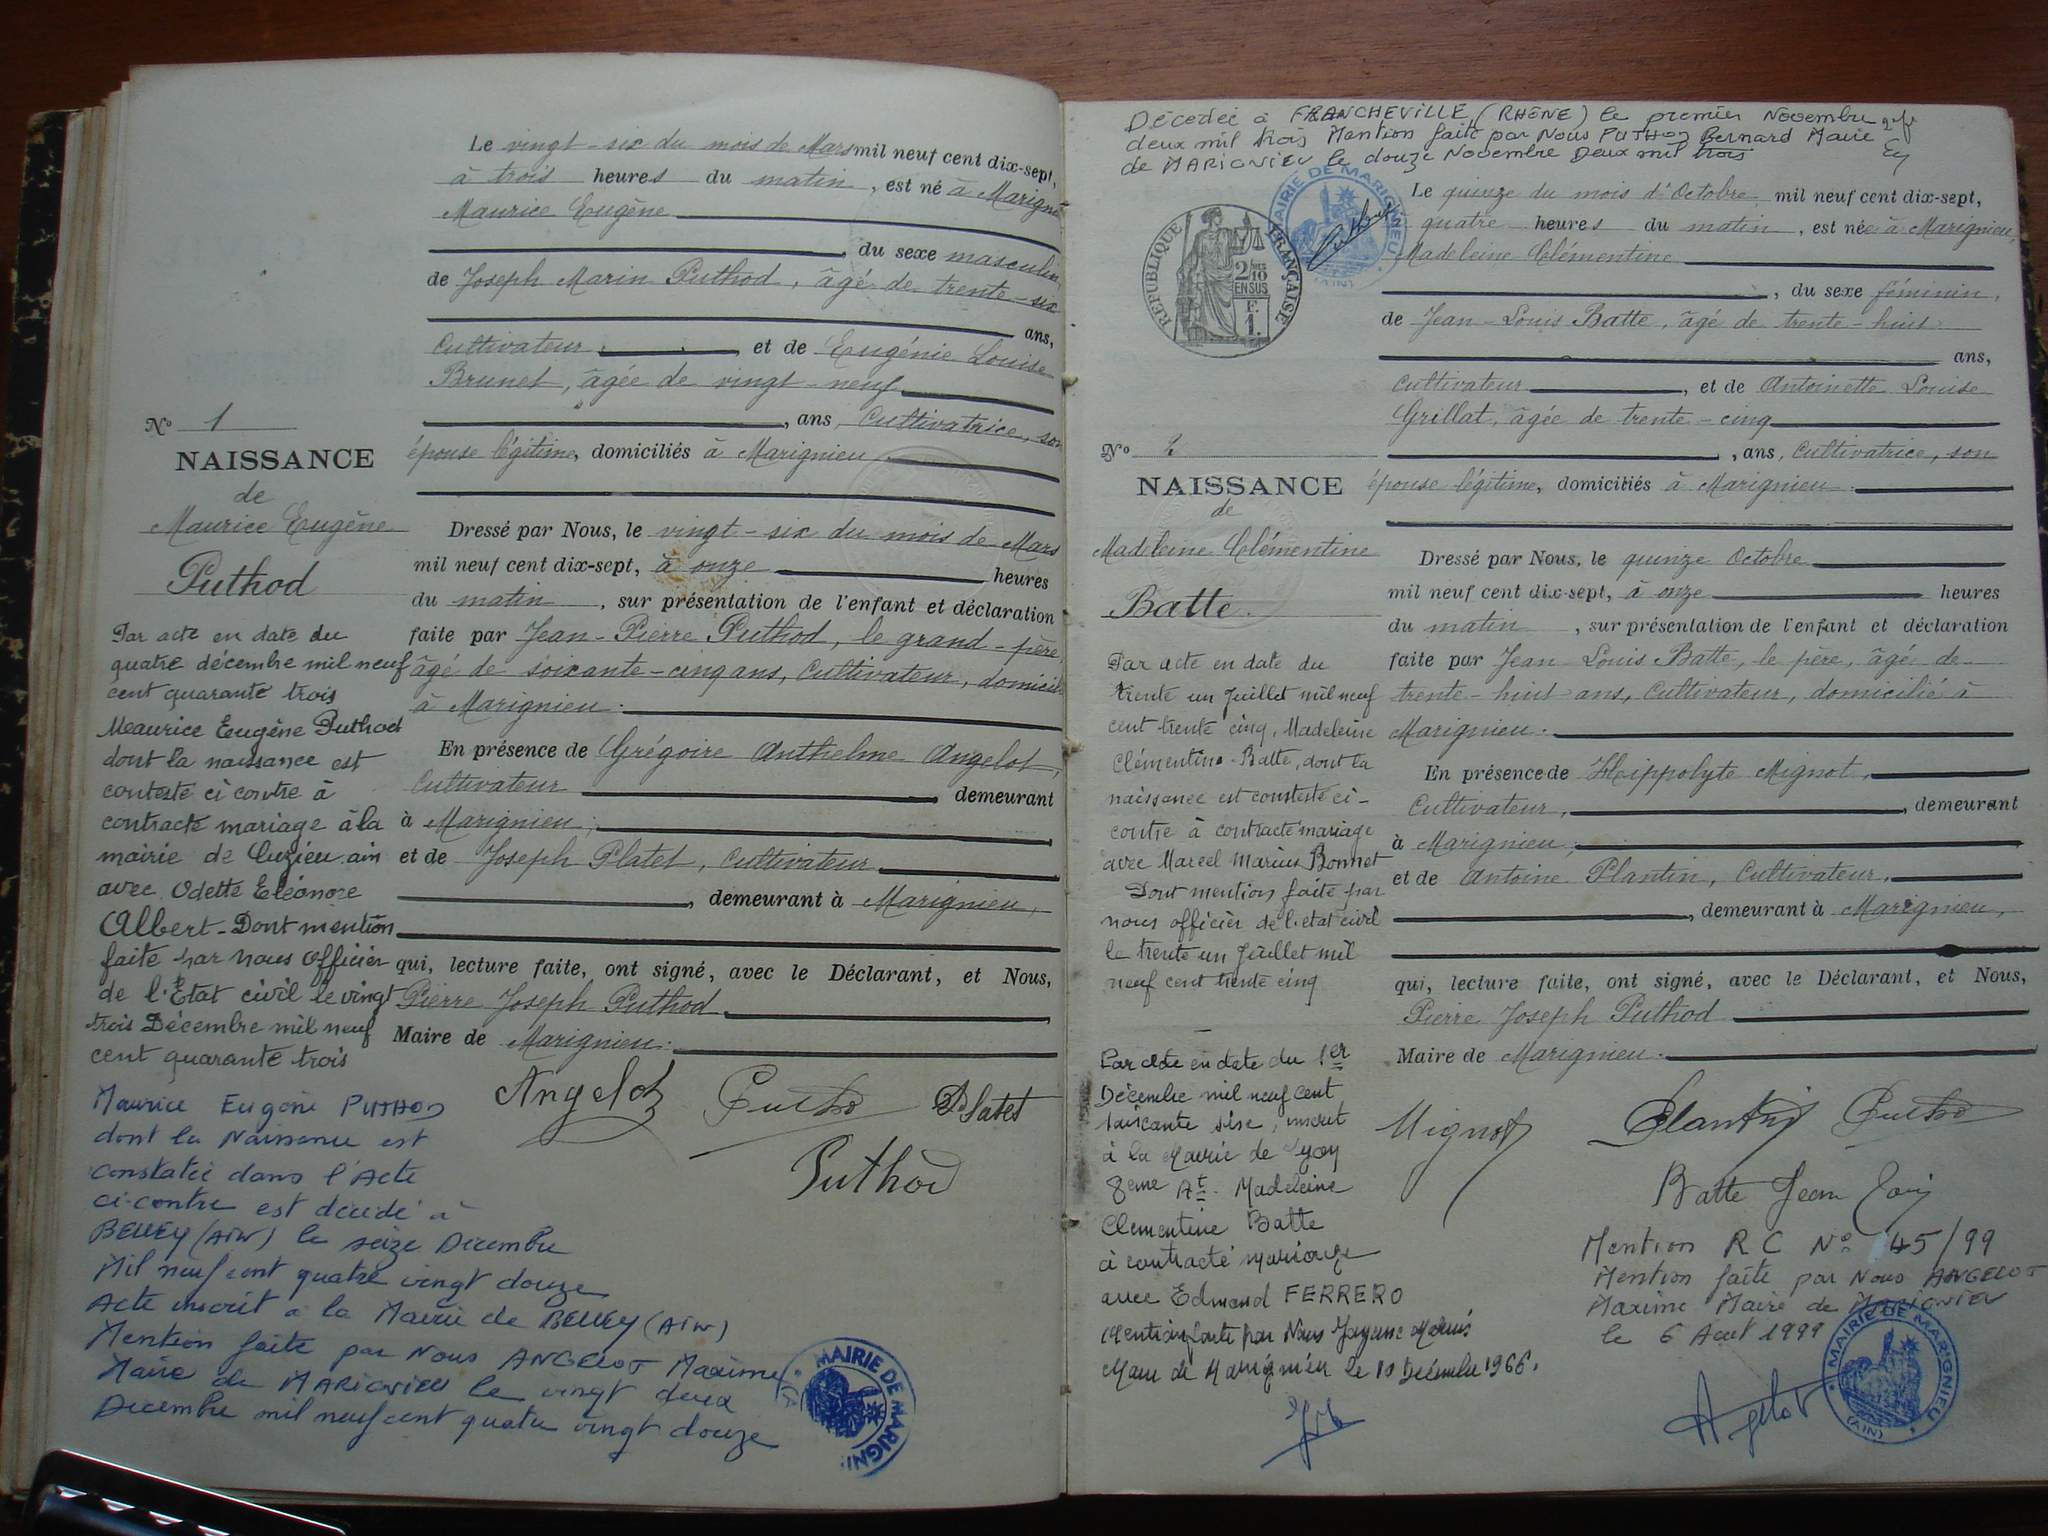 Le vingt-six du mois de Mars mil neuf cent dix-sept,
à trois heures du matin, est né à Marigni
Maurice Eugène
, du sexe masculin
de Joseph Marin Puthod, âgé de trente-six
ans,
Cultivateur, et de Eugénie Louise
Brunet, âgée de vingt-neuf
, ans, Cultivatrice, son
épouse légitime, domiciliés à Marignieu
No 1
NAISSANCE
de
Maurice Eugène
Puthod
Dressé par Nous, le vingt-six du mois de Mars
mil neuf cent dix-sept, à onze heures
du matin, sur présentation de l'enfant et déclaration
faite par Jean-Pierre Puthod, le grand-père,
âgé de soixante-cinq ans, Cultivateur, domicilié
à Marignieu.
En présence de Grégoire Anthelme Angelot,
Cultivateur demeurant
à Marignieu,
et de Joseph Platet, Cultivateur
, demeurant à Marignieu,
qui, lecture faite, ont signé, avec le Déclarant, et Nous,
Pierre Joseph Puthod
Maire de Marignieu.
Angelot Puthod Platet
Puthod
Par acte en date du
quatre décembre mil neuf
cent quarante trois
Maurice Eugène Puthod
dont la naissance est
constaté ci contre à
contracté mariage à la
mairie de Cuzieu ain
avec Odette Eléonore
Albert - Dont mention
faite par nous Officier
de l'Etat civil le vingt
trois Décembre mil neuf
cent quarante trois
Maurice Eugène PUTHOD
dont la Naissance est
constatée dans l'Acte
ci-contre est décédé à
BELLEY (AIN) le seize Décembre
Mil neuf cent quatre vingt douze
Acte inscrit à la Mairie de BELLEY (AIN)
Mention faite par Nous ANGELOT Maxime
Maire de MARIGNIEU le vingt deux
Décembre mil neuf cent quatre vingt douze
MAIRIE DE MARIGNI
Décédée à FRANCHEVILLE (RHÔNE) le premier Novembre
deux mil trois Mention faite par Nous PUTHOD Bernard Maire
de MARIGNIEU le douze Novembre Deux mil trois
MAIRIE DE MARIGNIEU
(AIN)
RÉPUBLIQUE FRANÇAISE
2/10
EN SUS
F.
1.
Le quinze du mois d'Octobre mil neuf cent dix-sept,
quatre heures du matin, est née à Marignieu,
Madeleine Clémentine
, du sexe féminin,
de Jean-Louis Batte, âgé de trente-huit
ans,
Cultivateur, et de Antoinette Louise
Grillat, âgée de trente-cinq
, ans, Cultivatrice, son
épouse légitime, domiciliés à Marignieu
No 2
NAISSANCE
de
Madeleine Clémentine
Batte.
Dressé par Nous, le quinze Octobre
mil neuf cent dix-sept, à onze heures
du matin, sur présentation de l'enfant et déclaration
faite par Jean Louis Batte, le père, âgé de
trente-huit ans, Cultivateur, domicilié à
Marignieu.
En présence de Hippolyte Mignot,
Cultivateur, demeurant
à Marignieu,
et de Antoine Plantin, Cultivateur,
, demeurant à Marignieu,
qui, lecture faite, ont signé, avec le Déclarant, et Nous,
Pierre Joseph Puthod
Maire de Marignieu.
Mignot Plantin Puthod
Batte Jean Louis
Par acte en date du
trente un Juillet mil neuf
cent trente cinq, Madeleine
Clémentine Batte, dont la
naissance est constaté ci-
contre à contracté mariage
avec Marcel Marius Bonnet
Dont mention faite par
nous officier de l'état civil
le trente un Juillet mil
neuf cent trente cinq
Par acte en date du 1er
Décembre mil neuf cent
soixante sise, inscrit
à la Mairie de Lyon
8eme At. Madeleine
Clementine Batte
à contracté mariage
avec Edmond FERRERO
Mention faite par Nous
Maire de Marignieu le 10 Décembre 1966.
Mention R C No 45/99
Mention faite par Nous ANGELOT
Maxime Maire de MARIGNIEU
le 6 Aout 1999
Angelot
MAIRIE DE MARIGNIEU
(AIN)